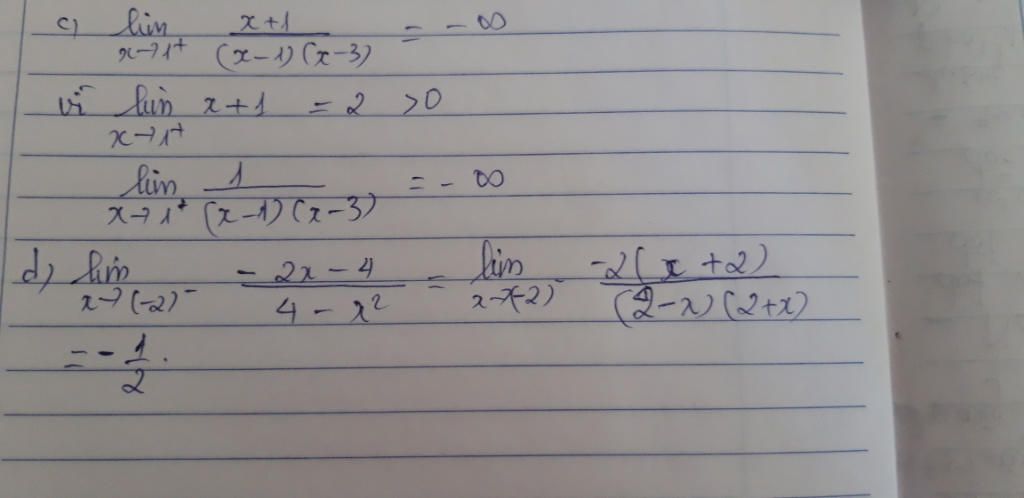 c) lim x→1⁺ (x+1)/((x−1)(x−3)) = −∞
vì lim x→1⁺ x+1 = 2 >0
lim x→1⁺ 1/((x−1)(x−3)) = −∞
d) lim x→(−2)⁻ (−2x−4)/(4−x²) = lim x→(−2)⁻ (−2(x+2))/((2−x)(2+x))
= −1/2.